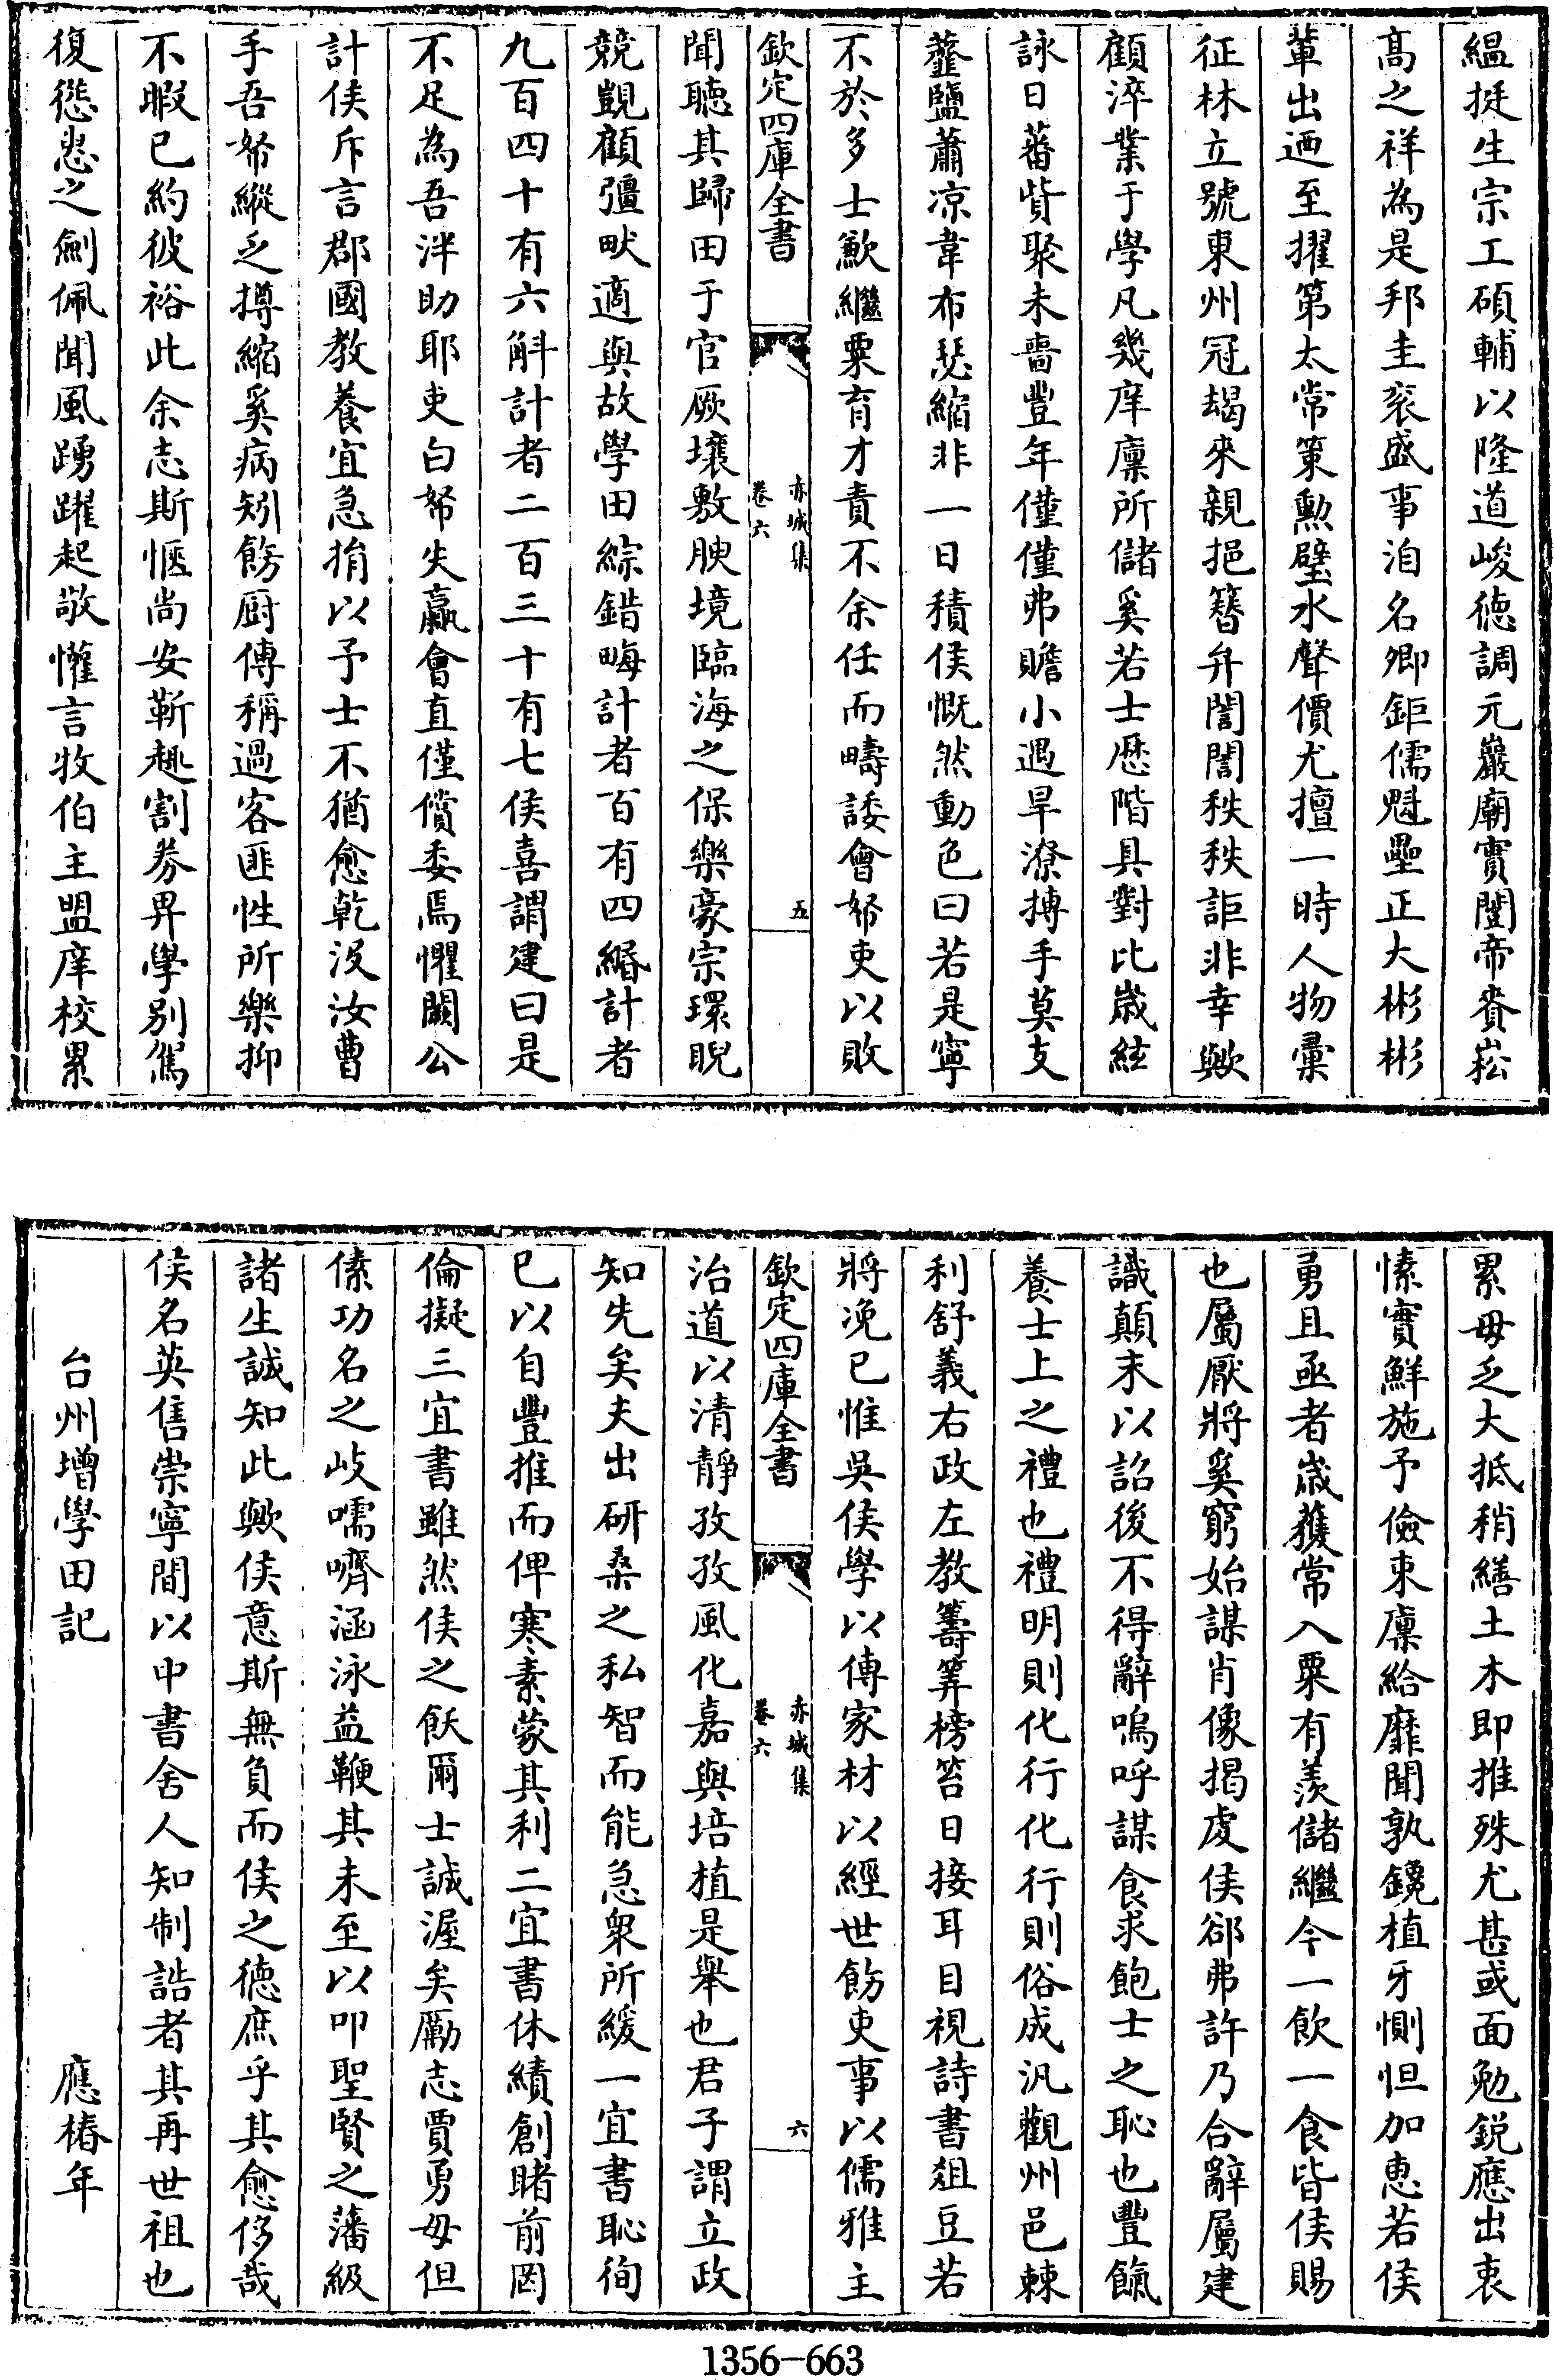 緼挺生宗工碩輔以隆道峻徳調元巖廟實闓帝賚崧
髙之祥為是邦圭衮盛事洎名卿鉅儒魁壘正大彬彬
輩出迺至擢第太常策勲璧水聲價尤擅一時人物彚
征林立號東州冠朅來親挹簪弁誾誾秩秩詎非幸歟
顧淬業于學凡幾庠廩所儲奚若士歴階具對比嵗絃
詠日蕃貲聚未啬豐年僅僅弗贍小遇旱潦摶手莫支
虀鹽蕭凉韋布瑟縮非一日積侯慨然動色曰若是寧
不於多士歉繼粟育才責不余任而疇諉會帑吏以敗
欽定四庫全書
赤城集
卷六
五
聞聴其歸田于官厥壤敷腴境臨海之保樂豪宗環睨
競覬顧彊畎適與故學田綜錯畮計者百有四緡計者
九百四十有六斛計者二百三十有七侯喜謂建曰是
不足為吾泮助耶吏白帑失贏會直僅償委焉懼闕公
計侯斥言郡國教養宜急捐以予士不猶愈乾没汝曹
手吾帑縱乏撙縮奚病矧飭厨傳稱過客匪性所樂抑
不暇已約彼裕此余志斯愜尚安靳趣割劵畀學别駕
復慫恿之劍佩聞風踴躍起敬懽言牧伯主盟庠校累
累毋乏大抵稍繕土木即推殊尤甚或面勉鋭應出衷
愫實鮮施予儉束廩給靡聞孰鑱植牙惻怛加恵若侯
勇且亟者嵗蓰常入粟有羨儲繼今一飲一食皆侯賜
也屬厭將奚窮始謀肖像揭䖍侯郤弗許乃合辭屬建
識顛末以詔後不得辭嗚呼謀食求飽士之恥也豐餼
養士上之禮也禮明則化行化行則俗成汎觀州邑棘
利舒義右政左教籌筭榜笞日接耳目視詩書爼豆若
將凂已惟吳侯學以傳家材以經世飭吏事以儒雅主
欽定四庫全書
赤城集
卷六
六
治道以清靜孜孜風化嘉與培植是舉也君子謂立政
知先矣夫出研桑之私智而能急衆所緩一宜書恥徇
已以自豐推而俾寒素蒙其利二宜書休績創睹前罔
倫擬三宜書雖然侯之飫爾士誠渥矣勵志賈勇毋但
傃功名之岐嚅嚌涵泳益鞭其未至以叩聖賢之藩級
諸生誠知此歟侯意斯無負而侯之徳庶乎其愈侈哉
侯名英雋崇寧間以中書舍人知制誥者其再世祖也
台州增學田記　應椿年
1356-663